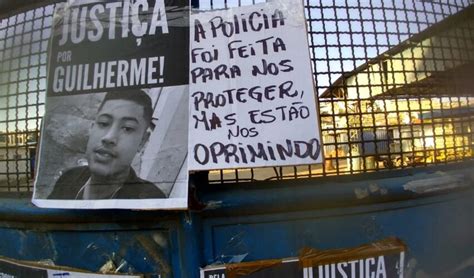 JUSTIÇA
POR
GUILHERME!
A POLÍCIA
FOI FEITA
PARA NOS
PROTEGER,
MAS ESTÃO
NOS
OPRIMINDO
JUSTIÇA
PELA
JUSTIÇA